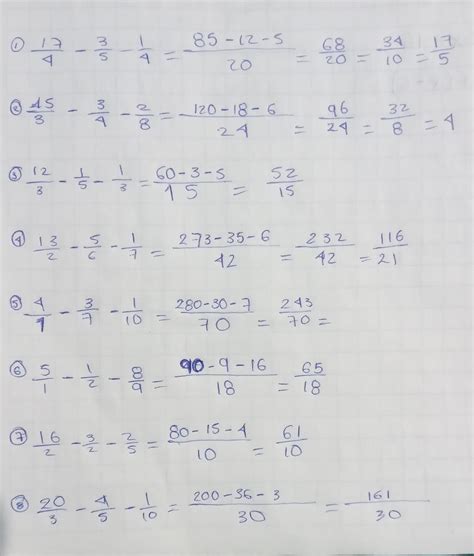 ① 17/4 - 3/5 - 1/4 = 85-12-5/20 = 68/20 = 34/10 = 17/5
② 15/3 - 3/4 - 2/8 = 120-18-6/24 = 96/24 = 32/8 = 4
③ 12/3 - 1/5 - 1/3 = 60-3-5/15 = 52/15
④ 13/2 - 5/6 - 1/7 = 273-35-6/42 = 232/42 = 116/21
⑤ 4/1 - 3/7 - 1/10 = 280-30-7/70 = 243/70 =
⑥ 5/1 - 1/2 - 8/9 = 90-9-16/18 = 65/18
⑦ 16/2 - 3/2 - 2/5 = 80-15-4/10 = 61/10
⑧ 20/3 - 4/5 - 1/10 = 200-36-3/30 = 161/30